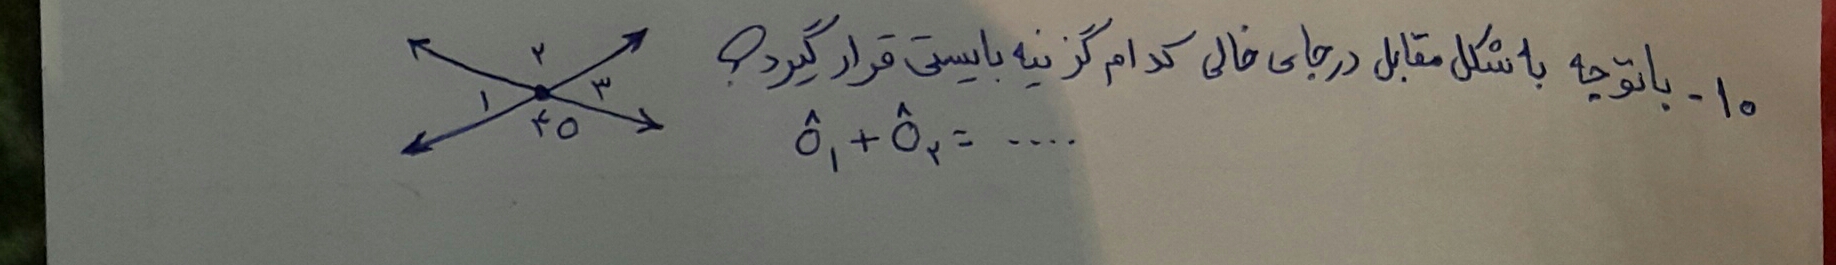 ۱۰- باتوجه به شکل مقابل درجای خالی کدام گزینه بایستی قرار گیرد؟
Ô₁ + Ô₂ = ....
۲
۱ ۳
۴ O